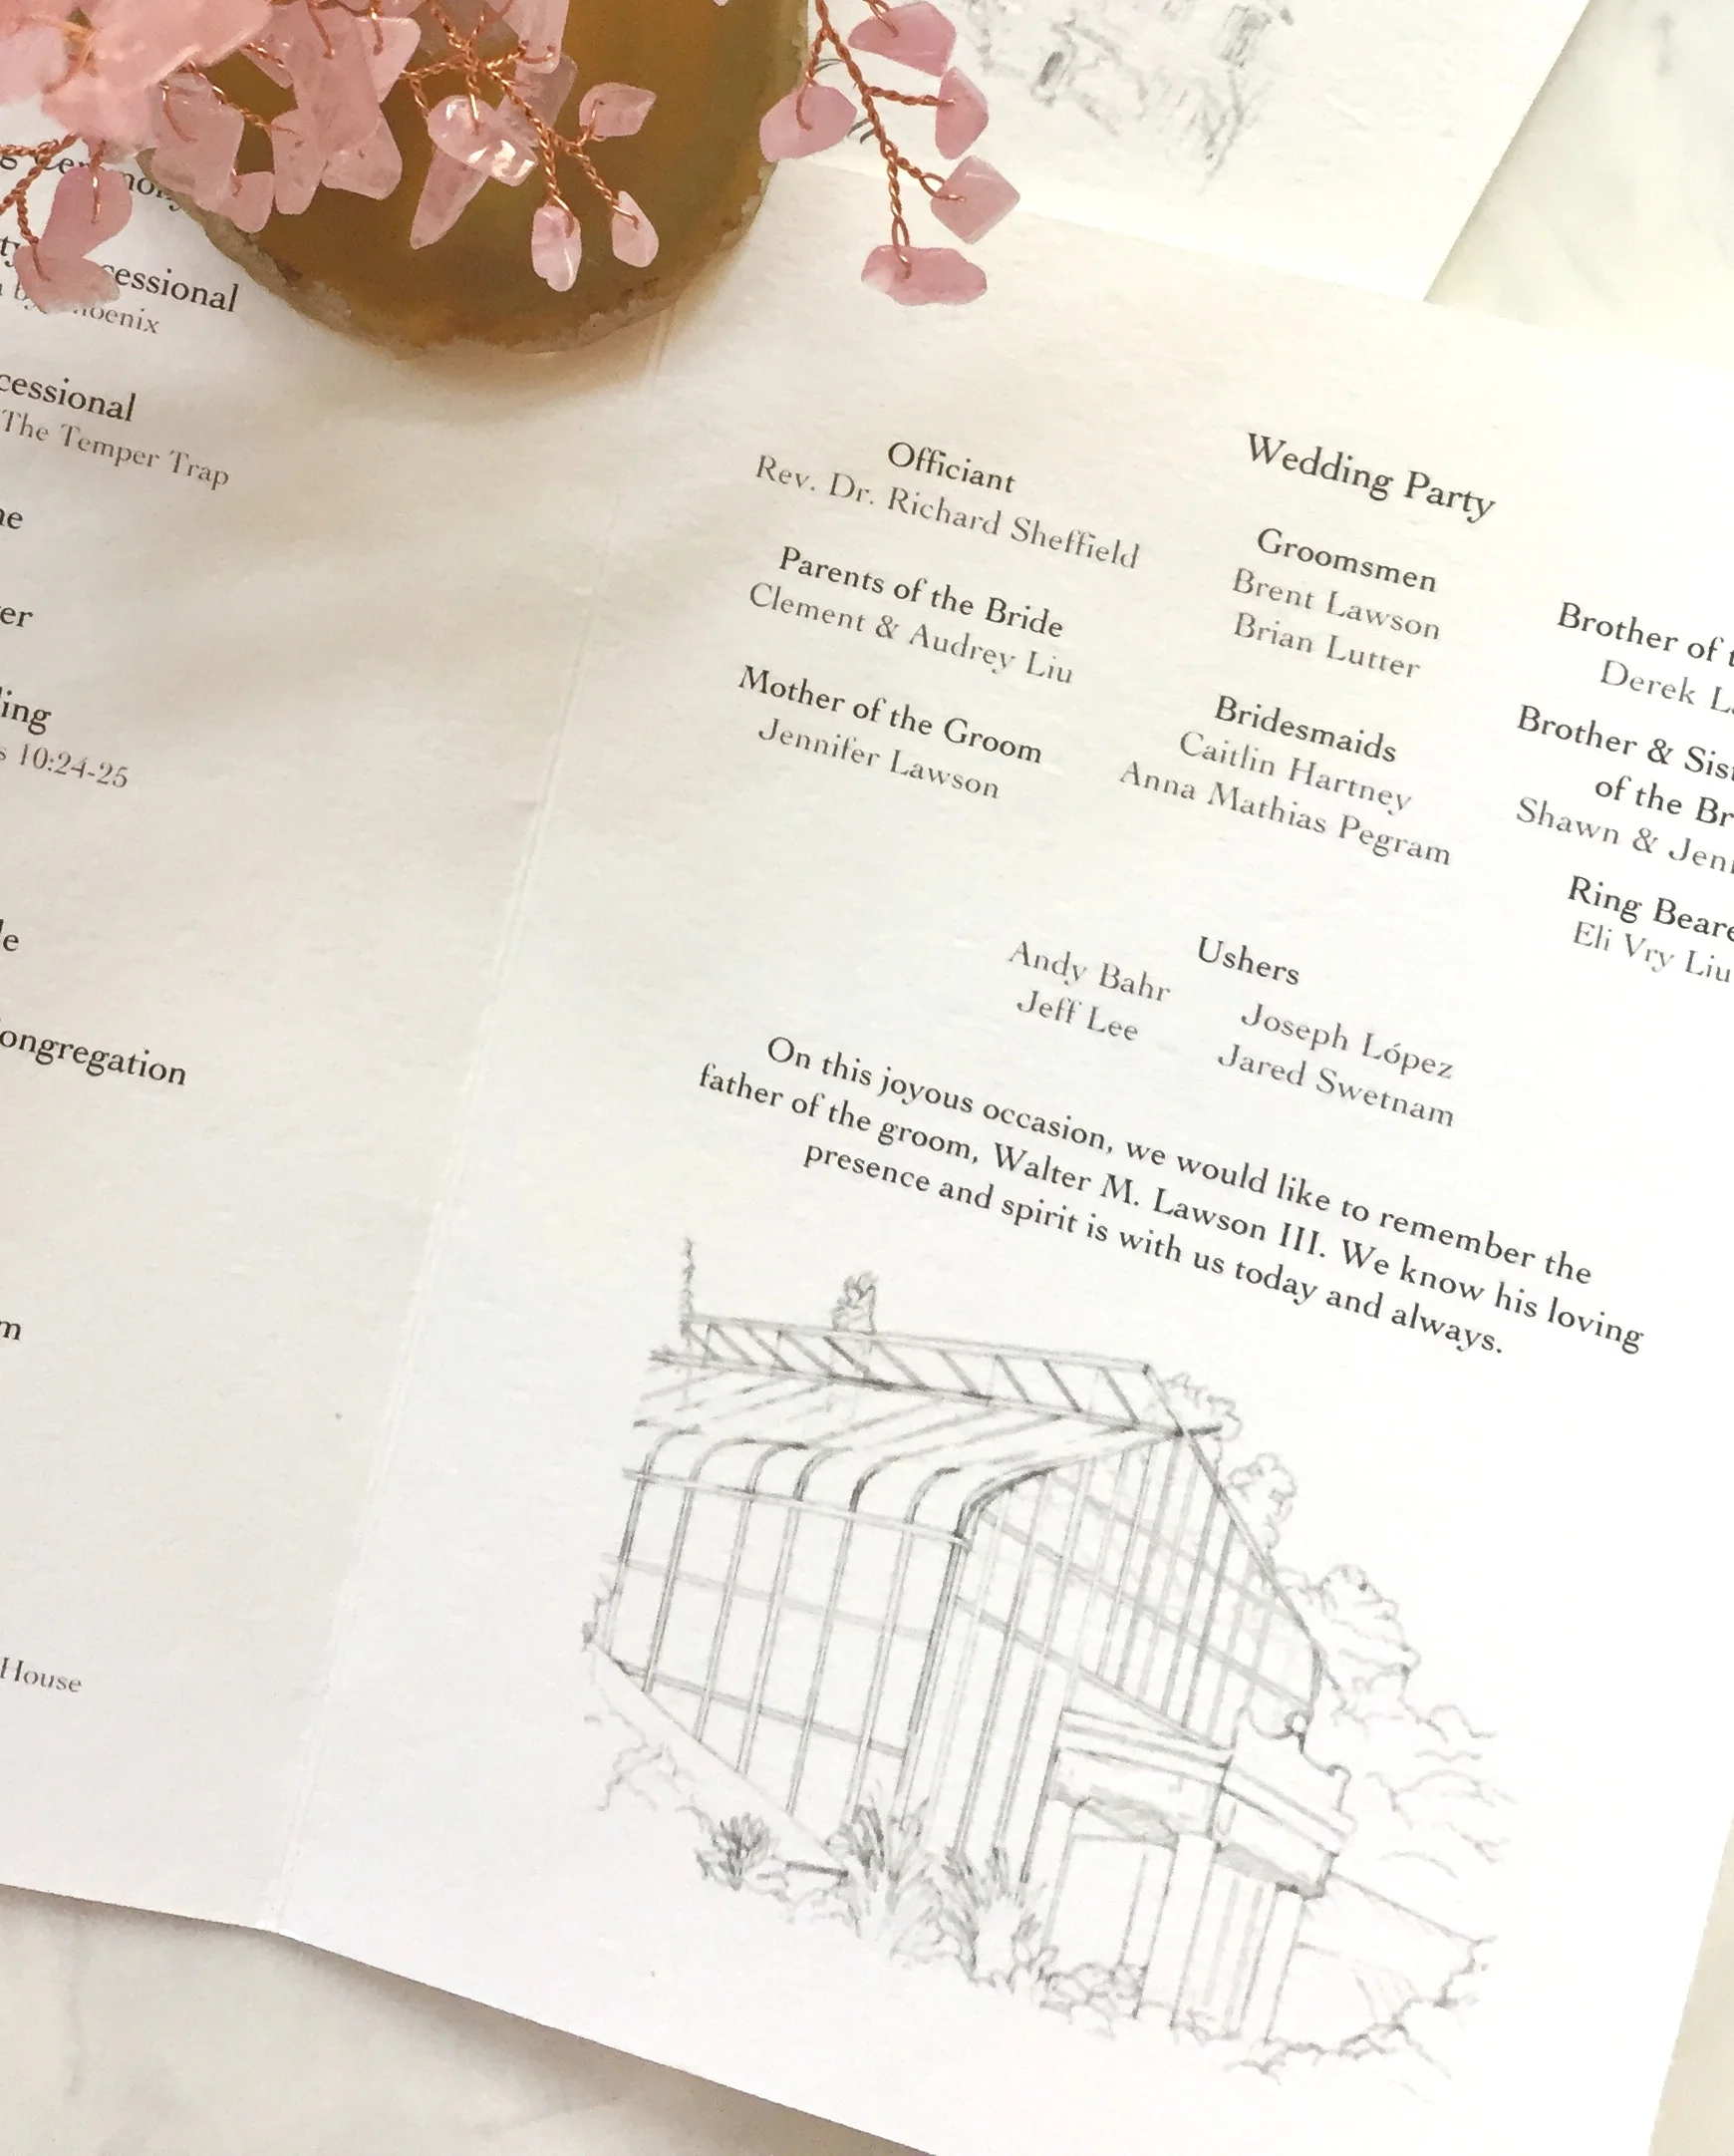 cessional
The Temper Trap
10:24-25
House
Wedding Party
Officiant
Rev. Dr. Richard Sheffield
Parents of the Bride
Clement & Audrey Liu
Mother of the Groom
Jennifer Lawson
Groomsmen
Brent Lawson
Brian Lutter
Bridesmaids
Caitlin Hartney
Anna Mathias Pegram
Brother of
Derek
Brother &
of the
Shawn &
Ring
Eli Vry Liu
Ushers
Andy Bahr
Jeff Lee
Joseph López
Jared Swetnam
On this joyous occasion, we would like to remember the
father of the groom, Walter M. Lawson III. We know his loving
presence and spirit is with us today and always.